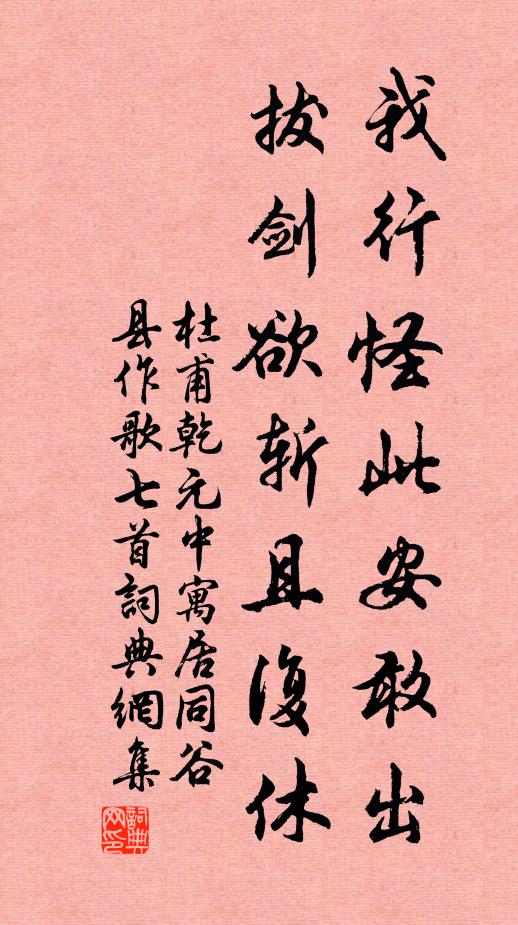 我行怪此安敢出
拔剑欲斩且復休
杜甫乾元中寓居同谷
县作歌七首詞典網集
詞典
网印